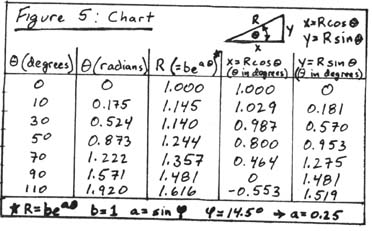 Figure 5: Chart
R y
θ
x
x=Rcosθ
y=Rsinθ
θ (degrees) θ (radians) R (=be^aθ)* x=Rcosθ (θ in degrees) y=Rsinθ (θ in degrees)
0 0 1.000 1.000 0
10 0.175 1.145 1.029 0.181
30 0.524 1.140 0.987 0.570
50 0.873 1.244 0.800 0.953
70 1.222 1.357 0.464 1.275
90 1.571 1.481 0 1.481
110 1.920 1.616 -0.553 1.519
* R=be^aθ b=1 a=sin φ φ=14.5° → a=0.25